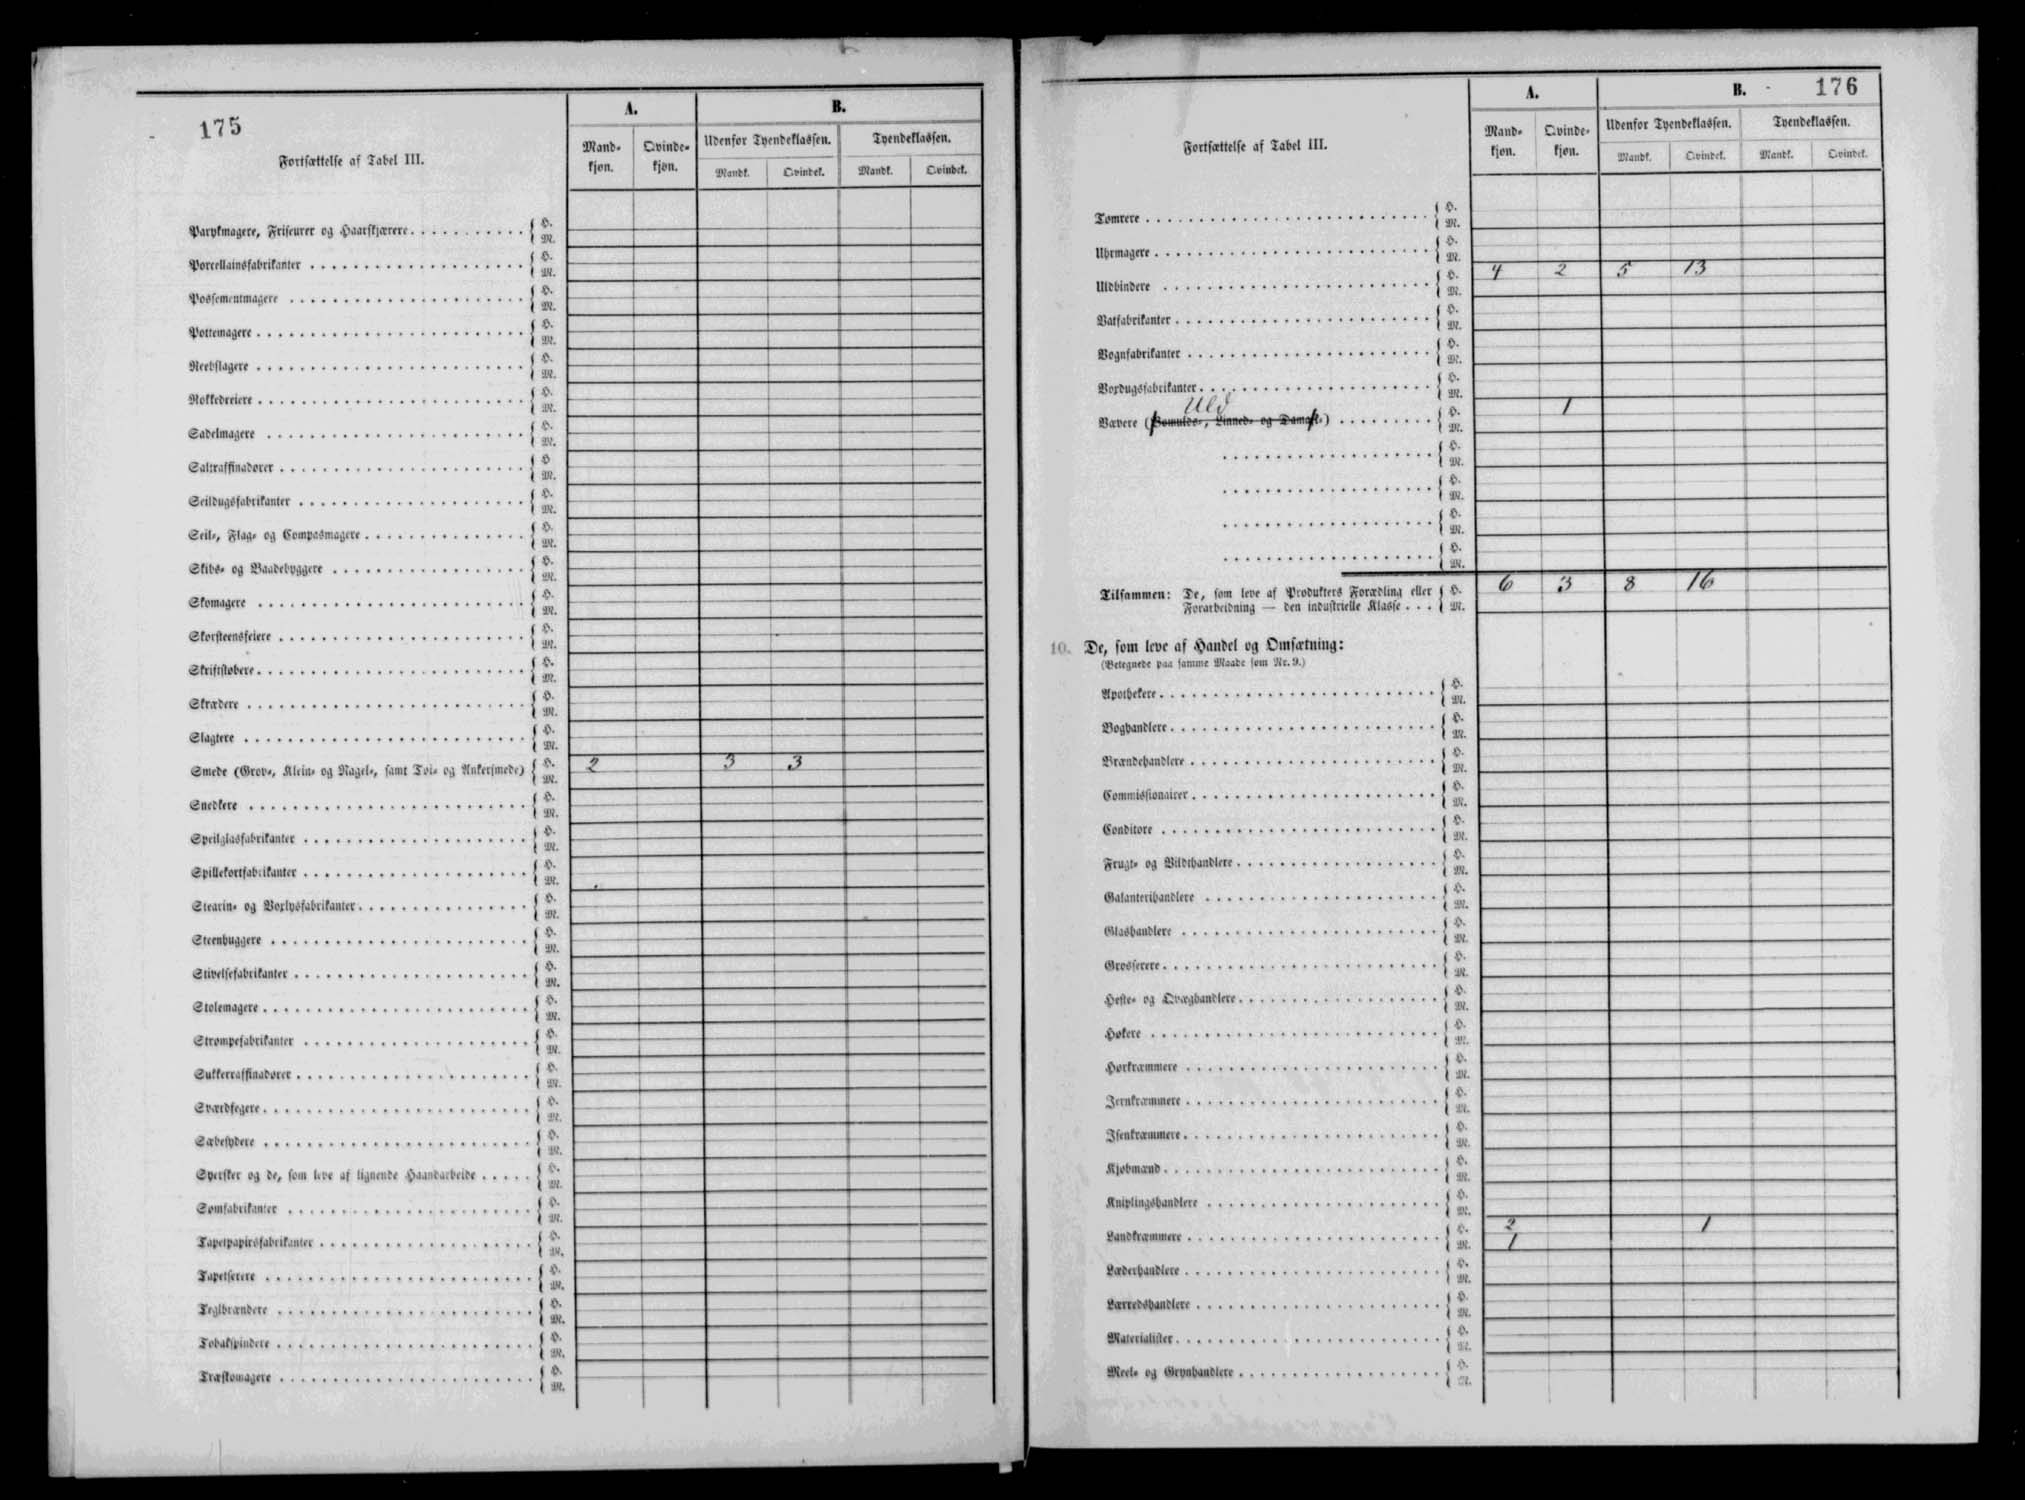 175
Fortsættelse af Tabel III.
A.
B.
Mandkjøn.
Qvindekjøn.
Udenfor Tyendeklassen.
Tyendeklassen.
Mandk.
Qvindek.
Mandk.
Qvindek.
Parykmagere, Friseurer og Haarskjærere H. M.
Porcellainsfabrikanter H. M.
Possementmagere H. M.
Pottemagere H. M.
Reebslagere H. M.
Rokkedreiere H. M.
Sadelmagere H. M.
Saltraffinadører H. M.
Seildugsfabrikanter H. M.
Seil-, Flag- og Compasmagere H. M.
Skibs- og Baadebyggere H. M.
Skomagere H. M.
Skorsteensfeiere H. M.
Skriftstøbere H. M.
Skrædere H. M.
Slagtere H. M.
Smede (Grov-, Klein- og Nagel-, samt Toi- og Ankersmede) H. M. 2 3 3
Snedkere H. M.
Speilglasfabrikanter H. M.
Spillekortfabrikanter H. M.
Stearin- og Voxlysfabrikanter H. M.
Steenhuggere H. M.
Stivelsefabrikanter H. M.
Stolemagere H. M.
Strømpefabrikanter H. M.
Sukkerraffinadører H. M.
Sværdfegere H. M.
Sæbesydere H. M.
Syersker og de, som leve af lignende Haandarbeide H. M.
Sømfabrikanter H. M.
Tapetpapirsfabrikanter H. M.
Tapetserere H. M.
Teglbrændere H. M.
Tobakspindere H. M.
Træskomagere H. M.
176
Fortsættelse af Tabel III.
A.
B.
Mandkjøn.
Qvindekjøn.
Udenfor Tyendeklassen.
Tyendeklassen.
Mandk.
Qvindek.
Mandk.
Qvindek.
Tømrere H. M.
Uhrmagere H. M.
Uldbindere H. M. 4 2 5 13
Vatfabrikanter H. M.
Vognfabrikanter H. M.
Voxdugsfabrikanter H. M.
Uld
Vævere (Bomulds-, Linned- og Damask-) H. M. 1
H. M.
H. M.
H. M.
H. M.
Tilsammen: De, som leve af Produkters Forædling eller H. 6 3 8 16
Forarbeidning — den industrielle Klasse M.
10. De, som leve af Handel og Omsætning:
(Betegnede paa samme Maade som Nr. 9.)
Apothekere H. M.
Boghandlere H. M.
Brændehandlere H. M.
Commissionairer H. M.
Conditore H. M.
Frugt- og Vildthandlere H. M.
Galanterihandlere H. M.
Glashandlere H. M.
Grosserere H. M.
Heste- og Qvæghandlere H. M.
Høkere H. M.
Hørkræmmere H. M.
Jernkræmmere H. M.
Isenkræmmere H. M.
Kjøbmænd H. M.
Kniplingshandlere H. M.
Landkræmmere H. 2 1
M. 1
Læderhandlere H. M.
Lærredshandlere H. M.
Materialister H. M.
Meel- og Grynhandlere H. M.